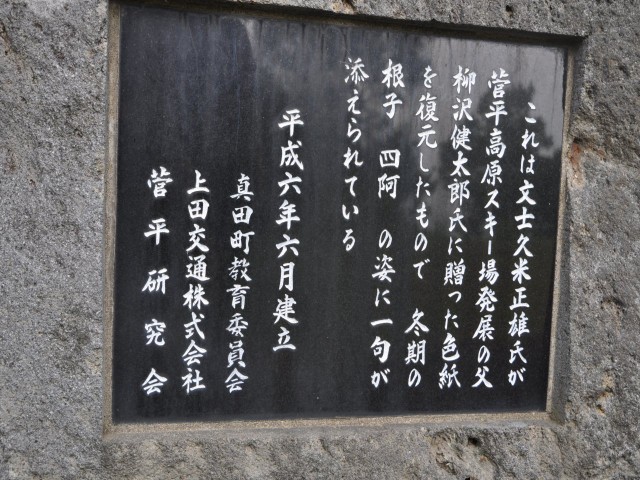 これは文士久米正雄氏が
菅平高原スキー場発展の父
柳沢健太郎氏に贈った色紙
を復元したもので 冬期の
根子 四阿 の姿に一句が
添えられている
平成六年六月建立
真田町教育委員会
上田交通株式会社
菅平研究会